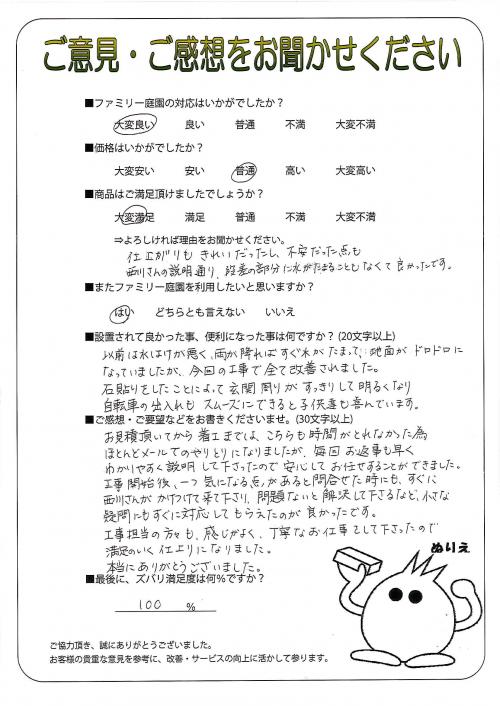 ご意見・ご感想をお聞かせください
■ファミリー庭園の対応はいかがでしたか？
大変良い 良い 普通 不満 大変不満
■価格はいかがでしたか？
大変安い 安い 普通 高い 大変高い
■商品はご満足頂けましたでしょうか？
大変満足 満足 普通 不満 大変不満
⇒よろしければ理由をお聞かせください。
仕上がりもきれいだったし、不安だった点も
西川さんの説明通り、段差の部分に水がたまることもなくて良かったです。
■またファミリー庭園を利用したいと思いますか？
はい どちらとも言えない いいえ
■設置されて良かった事、便利になった事は何ですか？(20文字以上)
以前は水はけが悪く、雨が降ればすぐ水がたまって、地面がドロドロに
なっていましたが、今回の工事で全て改善されました。
石貼りをしたことによって玄関周りがすっきりして明るくなり
自転車の出入れもスムーズにできると子供達も喜んでいます。
■ご感想・ご要望などをお書きくださいませ。(30文字以上)
お見積頂いてから着工までは、こちらも時間がとれなかった為
ほとんどメールでのやりとりになりましたが、毎回お返事も早く
わかりやすく説明して下さったので安心してお任せすることができました。
工事開始後、一つ気になる点があると問合せた時にも、すぐに
西川さんがかけつけて来て下さり、問題ないと解決して下さるなど、小さな
疑問にもすぐに対応してもらえたのが良かったです。
工事担当の方々も、感じがよく、丁寧なお仕事をして下さったので
満足のいく仕上りになりました。
本当にありがとうございました。
■最後に、ズバリ満足度は何%ですか？
100 %
ぬりえ
ご協力頂き、誠にありがとうございました。
お客様の貴重な意見を参考に、改善・サービスの向上に活かして参ります。